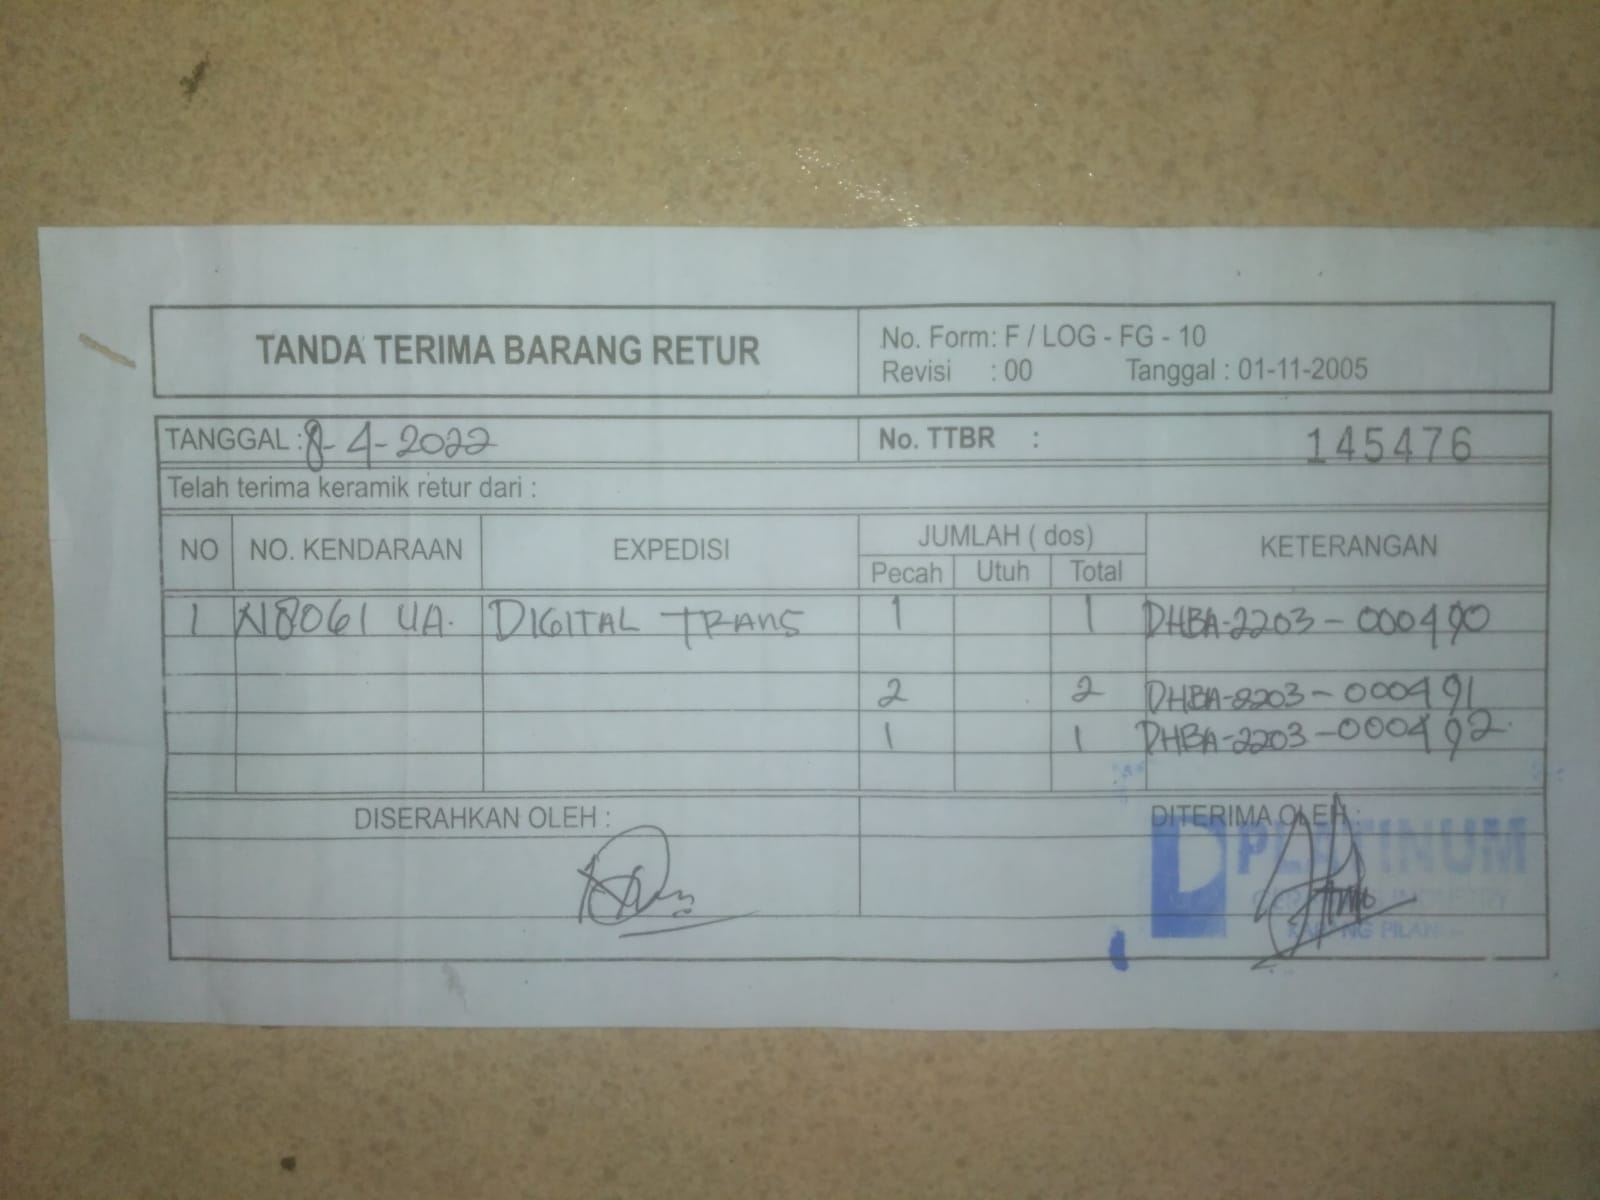 TANDA TERIMA BARANG RETUR
No. Form: F / LOG - FG - 10
Revisi : 00 Tanggal : 01-11-2005
TANGGAL : 8-4-2022 No. TTBR : 145476
Telah terima keramik retur dari :
NO NO. KENDARAAN EXPEDISI JUMLAH ( dos) KETERANGAN
Pecah Utuh Total
1 N8061 UA. DIGITAL TRANS 1 1 DHBA-2203-000490
2 2 DHBA-2203-000491
1 1 DHBA-2203-000492
DISERAHKAN OLEH : DITERIMA OLEH :
PLATINUM
INDUSTRY
KARANG PILANG